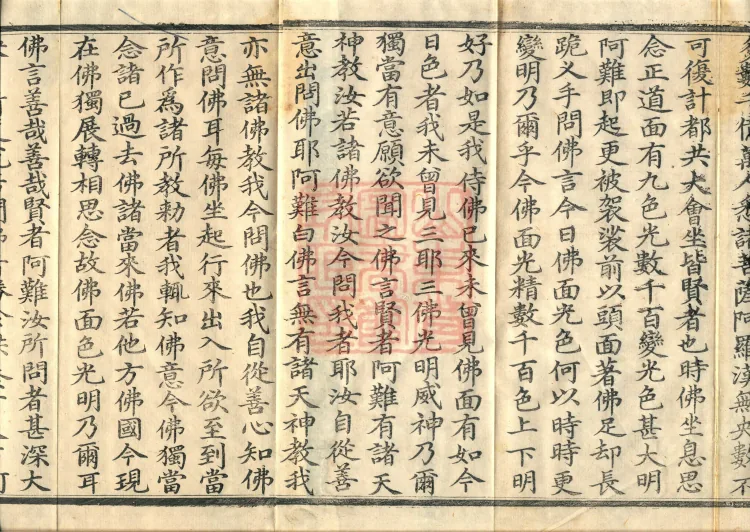 數千億萬人諸菩薩阿羅漢無央數不
可復計都共大會坐皆賢者也時佛坐息思
念正道面有九色光數千百變光色甚大明
阿難即起更被袈裟前以頭面著佛足却長
跪叉手問佛言今日佛面光色何以時時更
變明乃爾乎今佛面光精數千百色上下明
好乃如是我侍佛已來未曾見佛面有如今
日色者我未曾見三耶三佛光明威神乃爾
獨當有意願欲聞之佛言賢者阿難有諸天
神教汝若諸佛教汝今問我者耶汝自從善
意出問佛耶阿難白佛言無有諸天神教我
亦無諸佛教我今問佛也我自從善心知佛
意問佛耳每佛坐起行來出入所欲至到當
所作為諸所教勑者我輒知佛意今佛獨當
念諸已過去佛諸當來佛若他方佛國今現
在佛獨展轉相思念故佛面色光明乃爾耳
佛言善哉善哉賢者阿難汝所問者甚深大